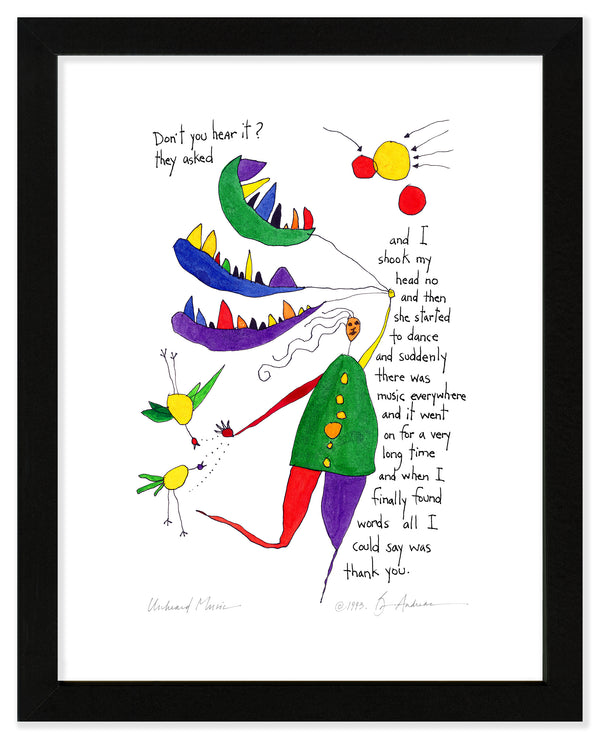 Don't you hear it?
they asked
and I
shook my
head no
and then
she started
to dance
and suddenly
there was
music everywhere
and it went
on for a very
long time
and when I
finally found
words all I
could say was
thank you.
Unheard Music
©1993. Andreas